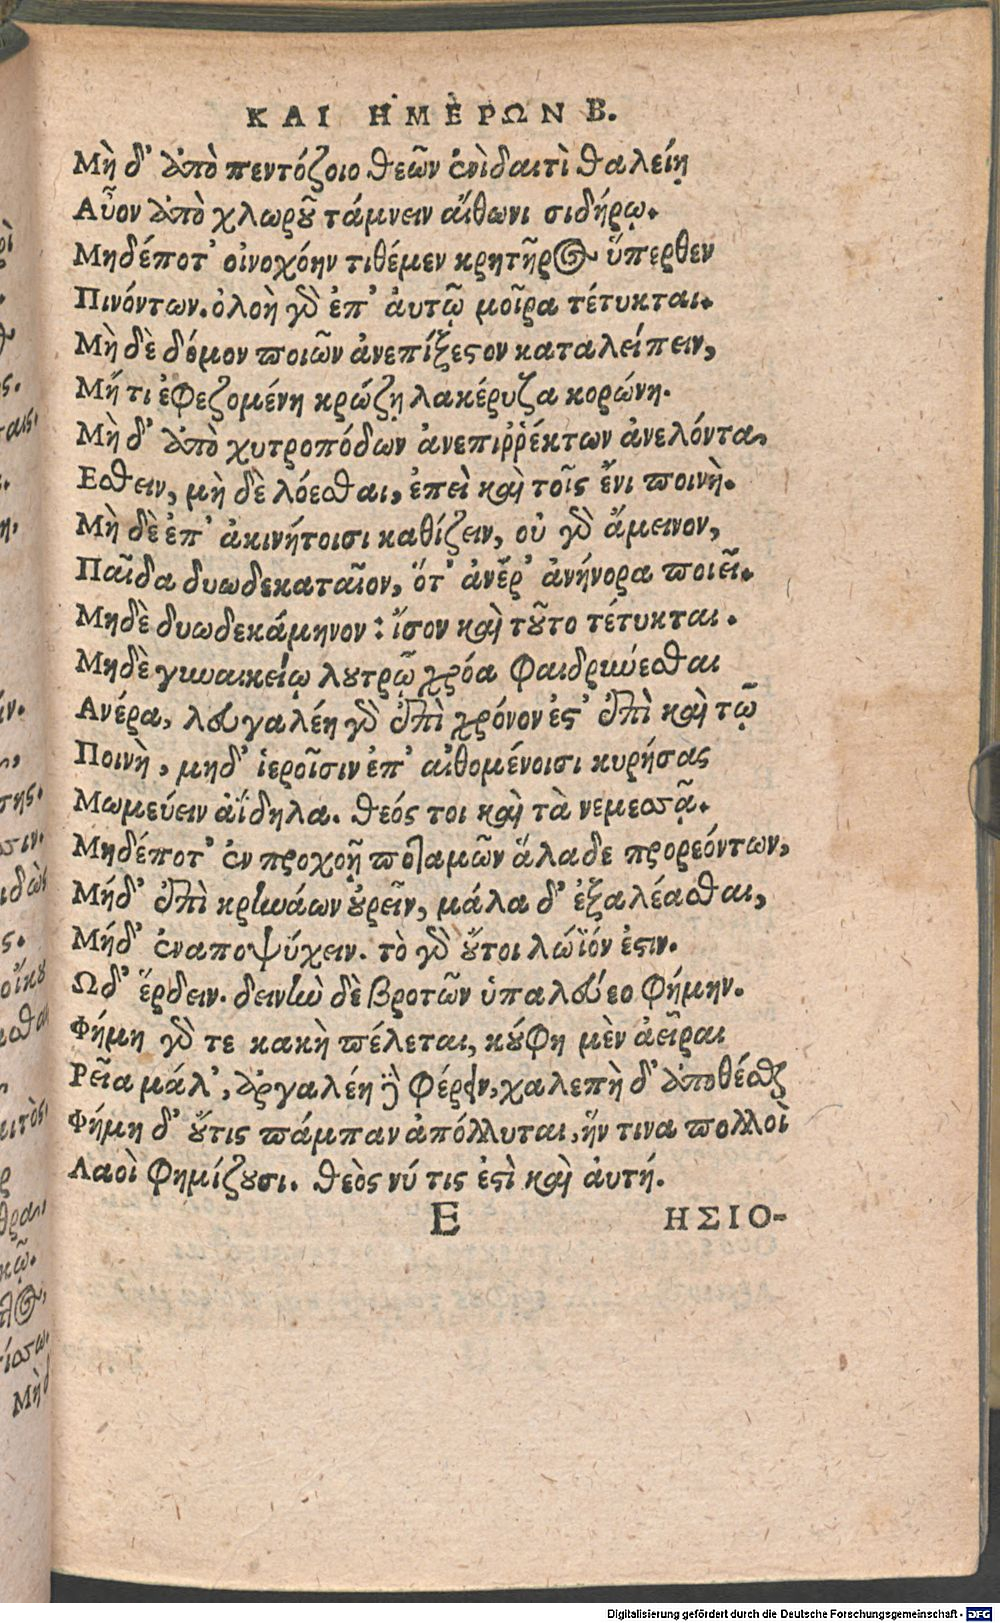 ΚΑΙ ΗΜΕΡΩΝ Β.
Μὴ δ' ἀπὸ πεντόζοιο θεῶν ἐνὶ δαιτὶ θαλείῃ
Αὖον ἀπὸ χλωροῦ τάμνειν αἴθωνι σιδήρῳ.
Μηδέποτ' οἰνοχόην τιθέμεν κρητῆρος ὕπερθεν
Πινόντων. ὀλοὴ γὰρ ἐπ' ἀυτῷ μοῖρα τέτυκται.
Μὴ δὲ δόμον ποιῶν ἀνεπίξεστον καταλείπειν,
Μή τι ἐφεζομένη κρώζῃ λακέρυζα κορώνη.
Μὴ δ' ἀπὸ χυτροπόδων ἀνεπιῤῥέκτων ἀνελόντα,
Εσθειν, μὴ δὲ λόεσθαι, ἐπεὶ καὶ τοῖς ἔνι ποινὴ.
Μὴ δὲ ἐπ' ἀκινήτοισι καθίζειν, οὐ γὰρ ἄμεινον,
Παῖδα δυωδεκαταῖον, ὅτ' ἀνέρ' ἀνήνορα ποιεῖ.
Μηδὲ δυωδεκάμηνον: ἴσον καὶ τοῦτο τέτυκται.
Μηδὲ γυναικείῳ λουτρῷ χρόα φαιδρύνεσθαι
Ανέρα, λευγαλέη γὰρ ἐπὶ χρόνον ἐστ' ἐπὶ καὶ τῷ
Ποινὴ, μηδ' ἱεροῖσιν ἐπ' αἰθομένοισι κυρήσας
Μωμεύειν ἀΐδηλα. θεός τοι καὶ τὰ νεμεσσᾷ.
Μηδέποτ' ἐν προχοῇ ποταμῶν ἅλαδε προρεόντων,
Μήδ' ἐπὶ κρηνάων οὐρεῖν, μάλα δ' ἐξαλέασθαι,
Μήδ' ἐναποψύχειν. τὸ γὰρ οὔτοι λώϊόν ἐστιν.
Ωδ' ἔρδειν. δεινὴν δὲ βροτῶν ὑπαλεύεο φήμην.
Φήμη γὰρ τε κακὴ πέλεται, κούφη μὲν ἀεῖραι
Ρεῖα μάλ', ἀργαλέη δὲ φέρειν, χαλεπὴ δ' ἀποθέσθαι
Φήμη δ' οὔτις πάμπαν ἀπόλλυται, ἥν τινα πολλοὶ
Λαοὶ φημίζουσι. θεὸς νύ τις ἐστὶ καὶ ἀυτή.
E ΗΣΙΟ-
Digitalisierung gefördert durch die Deutsche Forschungsgemeinschaft - DFG